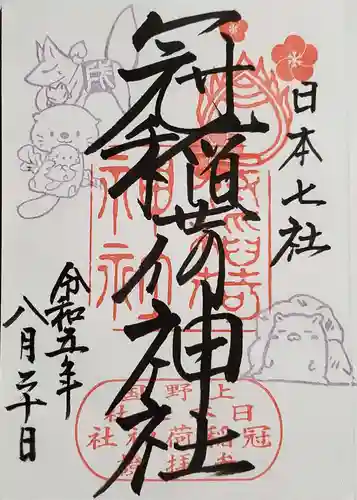 日本七社
冠稲荷神社
令和五年
八月二十日
上野国
日本七社
冠稲荷神社